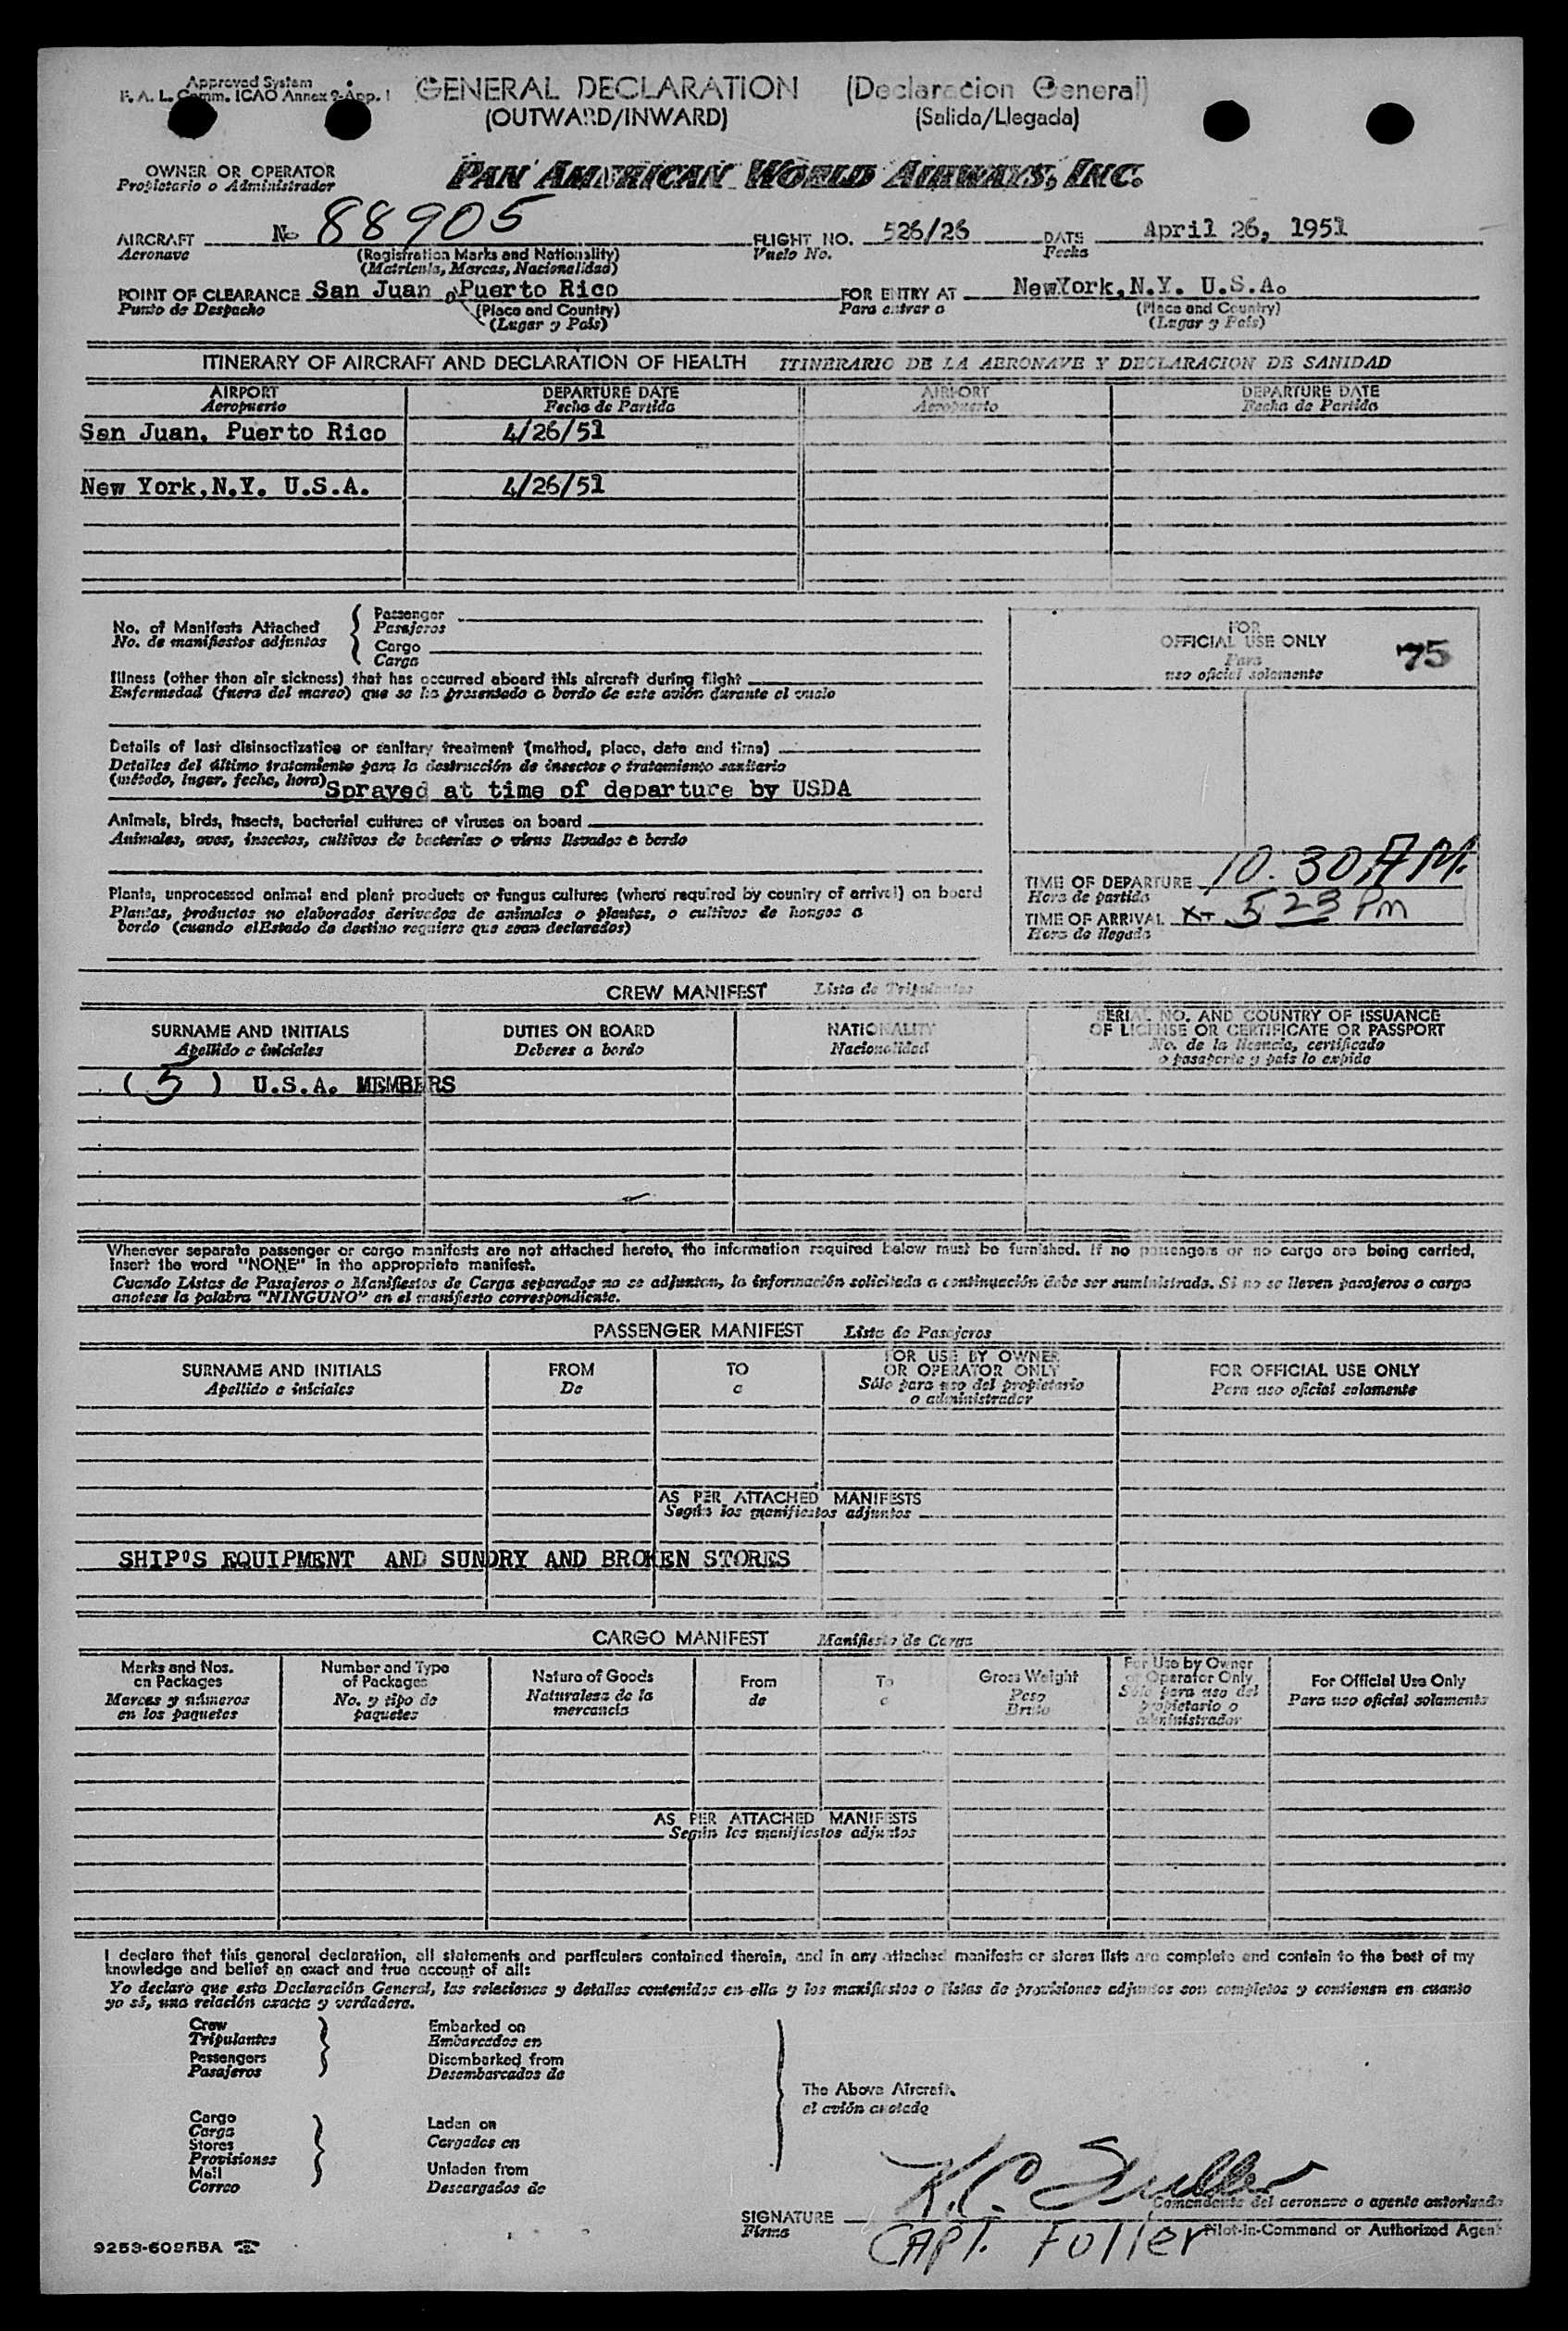 Approved System
F. A. L. Comm. ICAO Annex 9-App. I
GENERAL DECLARATION (Declaracion General)
(OUTWARD/INWARD) (Salida/Llegada)
OWNER OR OPERATOR
Propietario o Administrador
PAN AMERICAN WORLD AIRWAYS, INC.
AIRCRAFT No 88905 FLIGHT NO. 526/26 DATE April 26, 1951
Aeronave (Registration Marks and Nationality) Vuelo No. Fecha
(Matricula, Marcas, Nacionalidad)
POINT OF CLEARANCE San Juan, Puerto Rico FOR ENTRY AT NewYork,N.Y. U.S.A.
Punto de Despacho (Place and Country) Para entrar a (Place and Country)
(Lugar y País) (Lugar y País)
ITINERARY OF AIRCRAFT AND DECLARATION OF HEALTH ITINERARIO DE LA AERONAVE Y DECLARACION DE SANIDAD
AIRPORT DEPARTURE DATE AIRPORT DEPARTURE DATE
Aeropuerto Fecha de Partida Aeropuerto Fecha de Partida
San Juan, Puerto Rico 4/26/51
New York,N.Y. U.S.A. 4/26/51
No. of Manifests Attached
No. de manifiestos adjuntos
Passenger
Pasajeros
Cargo
Carga
FOR
OFFICIAL USE ONLY
Para
uso oficial solamente
75
Illness (other than air sickness) that has occurred aboard this aircraft during flight
Enfermedad (fuera del mareo) que se ha presentado a bordo de este avión durante el vuelo
Details of last disinsectization or sanitary treatment (method, place, date and time)
Detalles del último tratamiento para la destrucción de insectos o tratamiento sanitario
(método, lugar, fecha, hora) Sprayed at time of departure by USDA
Animals, birds, insects, bacterial cultures or viruses on board
Animales, aves, insectos, cultivos de bacterias o virus llevados a bordo
Plants, unprocessed animal and plant products or fungus cultures (where required by country of arrival) on board
Plantas, productos no elaborados derivados de animales o plantas, o cultivos de hongos a
bordo (cuando elEstado de destino requiere que sean declarados)
TIME OF DEPARTURE 10.30 AM.
Hora de partida
TIME OF ARRIVAL 5 23 Pm
Hora de llegada
CREW MANIFEST Lista de Tripulantes
SURNAME AND INITIALS DUTIES ON BOARD NATIONALITY SERIAL NO. AND COUNTRY OF ISSUANCE
OF LICENSE OR CERTIFICATE OR PASSPORT
Apellido e iniciales Deberes a bordo Nacionalidad No. de la licencia, certificado
o pasaporte y país lo expide
( 5 ) U.S.A. MEMBERS
Whenever separate passenger or cargo manifests are not attached hereto, the information required below must be furnished. If no passengers or no cargo are being carried,
insert the word "NONE" in the appropriate manifest.
Cuando Listas de Pasajeros o Manifiestos de Carga separados no se adjunten, la información solicitada a continuación debe ser suministrada. Si no se lleven pasajeros o carga
anotese la palabra "NINGUNO" en el manifiesto correspondiente.
PASSENGER MANIFEST Lista de Pasajeros
SURNAME AND INITIALS FROM TO FOR USE BY OWNER
OR OPERATOR ONLY FOR OFFICIAL USE ONLY
Apellido e iniciales De a Sólo para uso del propietario
o administrador Para uso oficial solamente
AS PER ATTACHED MANIFESTS
Según los manifiestos adjuntos
SHIP'S EQUIPMENT AND SUNDRY AND BROKEN STORES
CARGO MANIFEST Manifiesto de Carga
Marks and Nos.
on Packages
Marcas y números
en los paquetes
Number and Type
of Packages
No. y tipo de
paquetes
Nature of Goods
Naturaleza de la
mercancía
From
de
To
a
Gross Weight
Peso
Bruto
For Use by Owner
or Operator Only
Sólo para uso del
propietario o
administrador
For Official Use Only
Para uso oficial solamente
AS PER ATTACHED MANIFESTS
Según los manifiestos adjuntos
I declare that this general declaration, all statements and particulars contained therein, and in any attached manifests or stores lists are complete and contain to the best of my
knowledge and belief an exact and true account of all:
Yo declaro que esta Declaración General, las relaciones y detalles contenidos en ella y los manifiestos o listas de provisiones adjuntos son completos y contienen en cuanto
yo sé, una relación exacta y verdadera.
Crew
Tripulantes
Passengers
Pasajeros
Embarked on
Embarcados en
Disembarked from
Desembarcados de
The Above Aircraft.
el avión anotado
Cargo
Carga
Stores
Provisiones
Mail
Correo
Laden on
Cargados en
Unladen from
Descargados de
K.C. Fuller
Comandante del aeronave o agente autorizado
SIGNATURE
Firma
Pilot-in-Command or Authorized Agent
CAPT. Fuller
9253-60258A